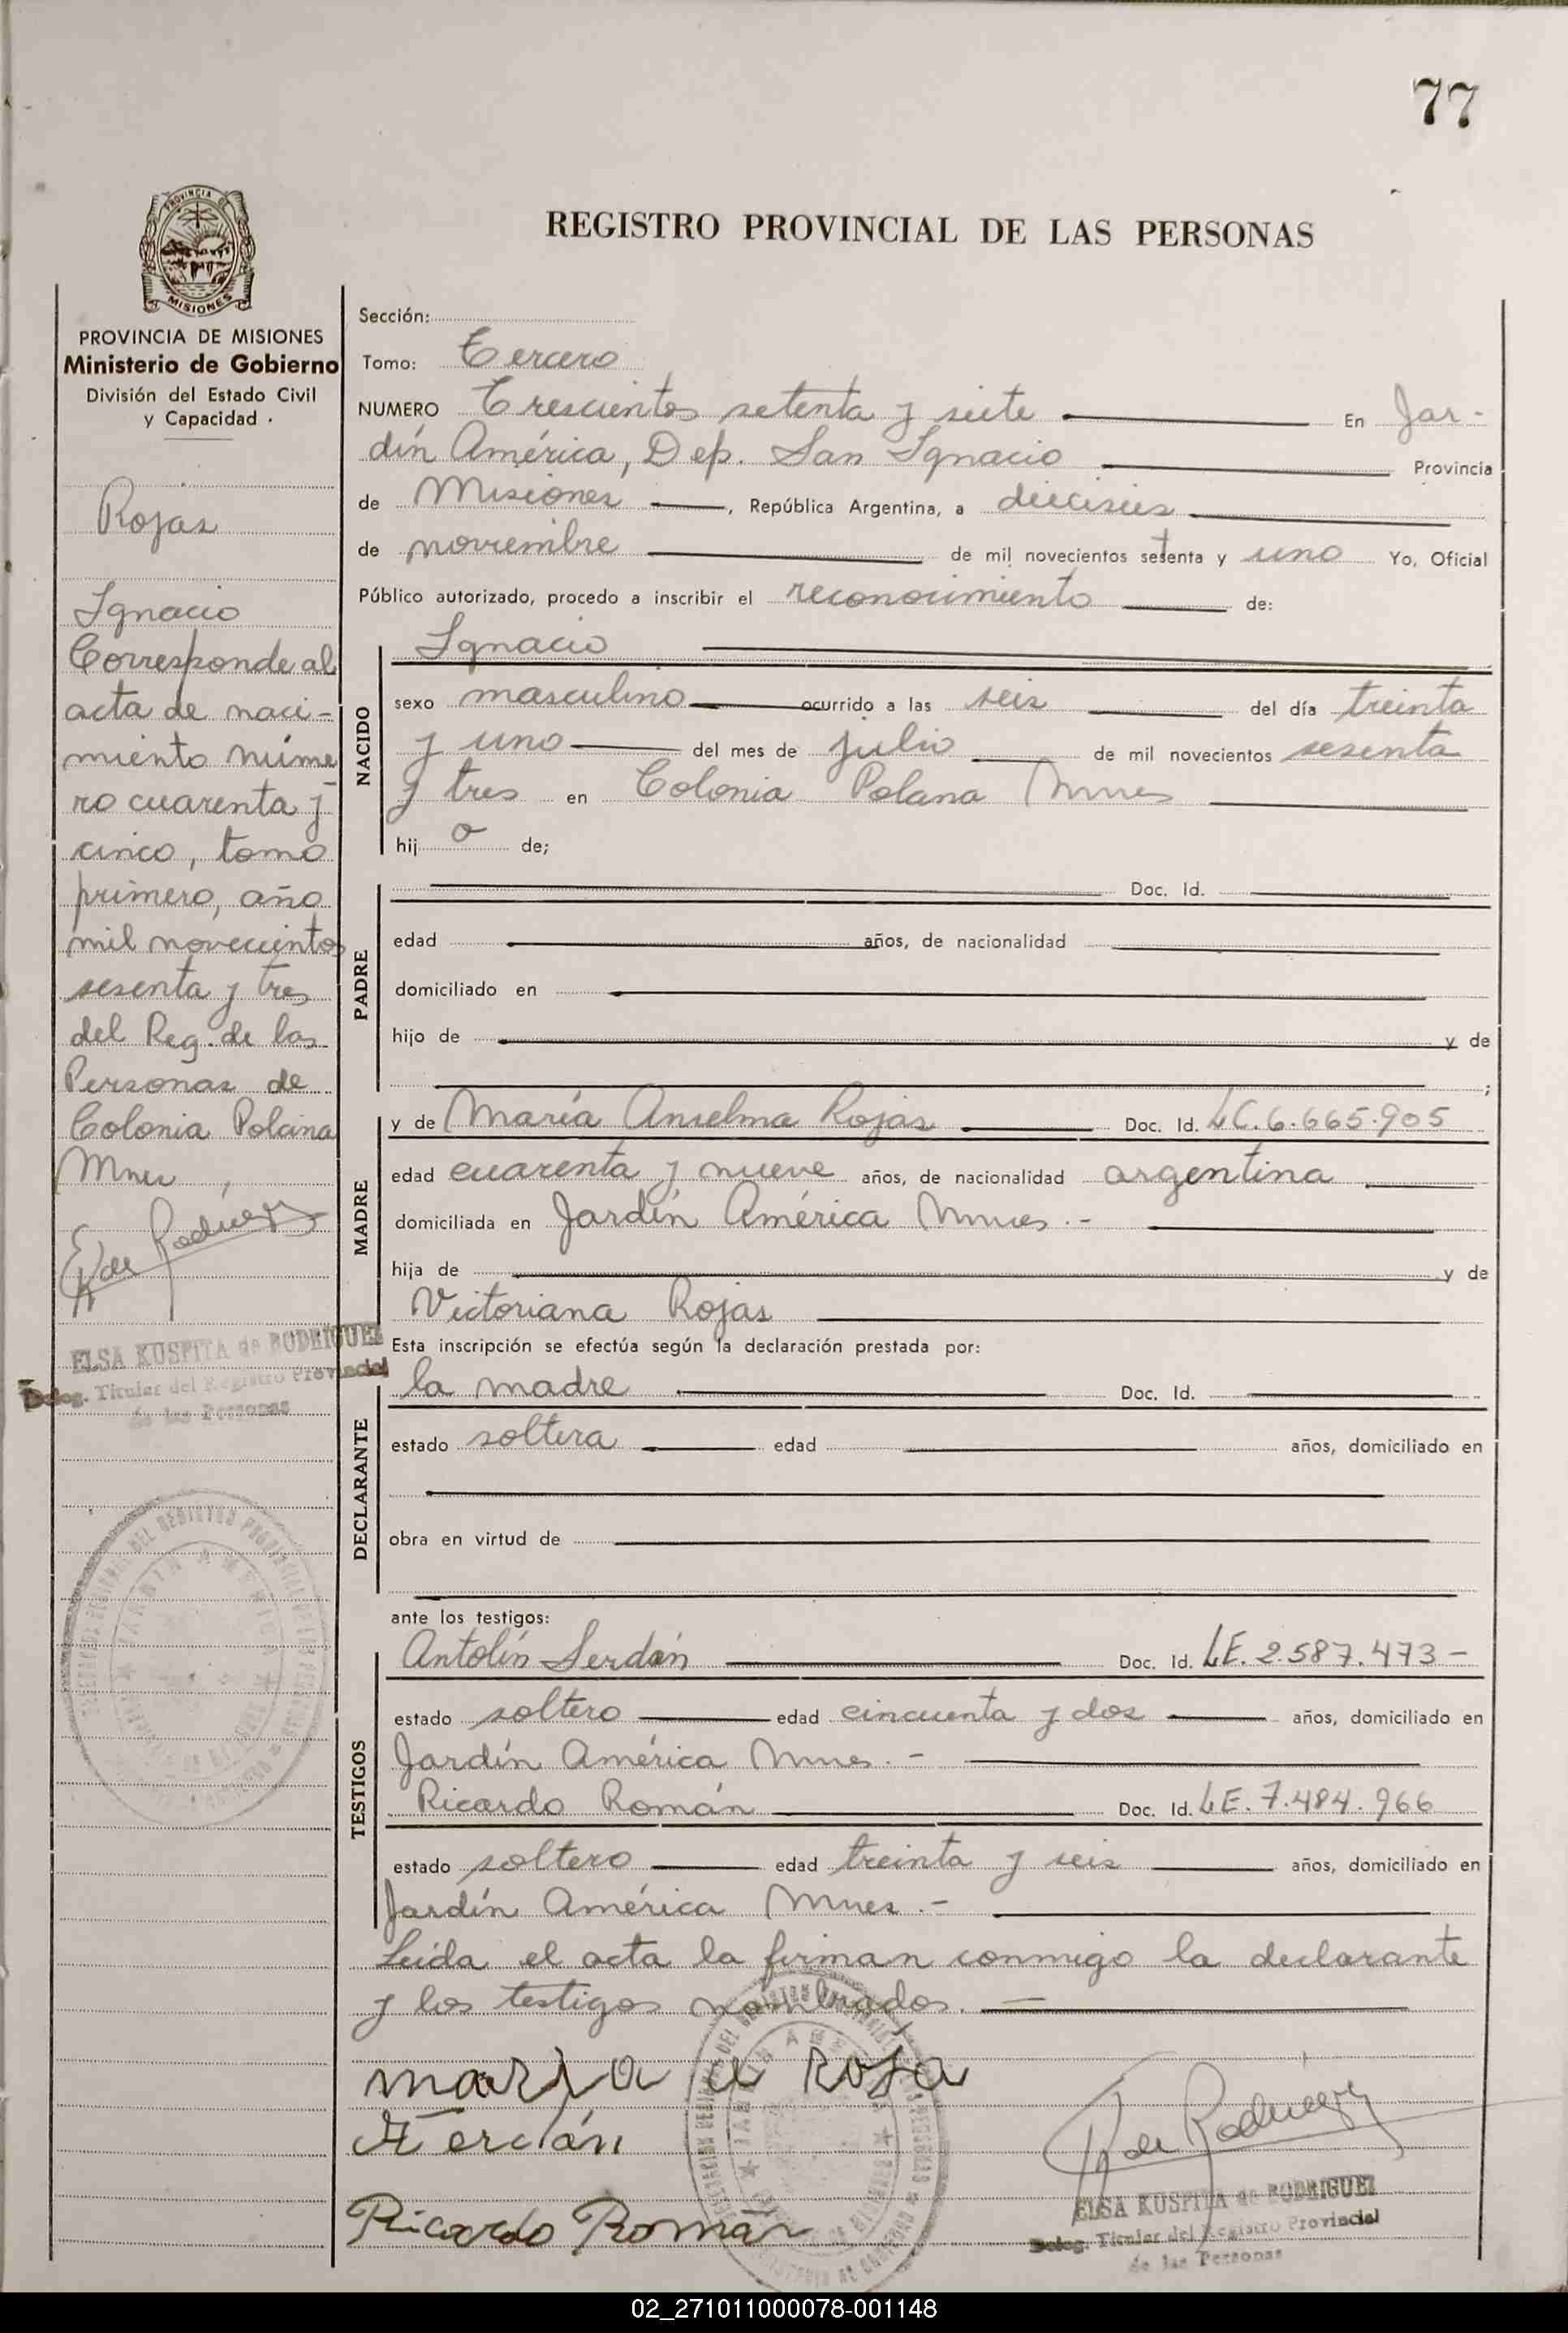 77
REGISTRO PROVINCIAL DE LAS PERSONAS
PROVINCIA DE
MISIONES
PROVINCIA DE MISIONES
Ministerio de Gobierno
División del Estado Civil
y Capacidad .
Rojas
Ignacio
Corresponde al
acta de naci-
miento núme
ro cuarenta y
cinco, tomo
primero, año
mil novecientos
sesenta y tres
del Reg. de las
Personas de
Colonia Polana
Mnes
de Rodríguez
ELSA KUSPITA de RODRIGUEZ
Deleg. Titular del Registro Provincial
de las Personas
Sección:
Tomo: Tercero
NUMERO Trescientos setenta y siete En Jar-
dín América, Dep. San Ignacio Provincia
de Misiones , República Argentina, a dieciseis
de noviembre de mil novecientos setenta y uno Yo, Oficial
Público autorizado, procedo a inscribir el reconocimiento de:
NACIDO
Ignacio
sexo masculino ocurrido a las seis del día treinta
y uno del mes de julio de mil novecientos sesenta
y tres en Colonia Polana Mnes
hij o de;
PADRE
Doc. Id.
edad años, de nacionalidad
domiciliado en
hijo de y de
;
MADRE
y de María Anselma Rojas Doc. Id. LC. 6.665.905
edad cuarenta y nueve años, de nacionalidad argentina
domiciliada en Jardín América Mnes.-
hija de y de
Victoriana Rojas
Esta inscripción se efectúa según la declaración prestada por:
DECLARANTE
la madre Doc. Id.
estado soltera edad años, domiciliado en
obra en virtud de
ante los testigos:
TESTIGOS
Antolín Serdán Doc. Id. LE. 2.587.473-
estado soltero edad cincuenta y dos años, domiciliado en
Jardín América Mnes.-
Ricardo Román Doc. Id. LE. 7.484.966
estado soltero edad treinta y seis años, domiciliado en
Jardín América Mnes.-
Leída el acta la firman conmigo la declarante
y los testigos nombrados.
maria a rosa
Ricardo Román
de Rodríguez
ELSA KUSPITA de RODRIGUEZ
Deleg. Titular del Registro Provincial
de las Personas
02_271011000078-001148